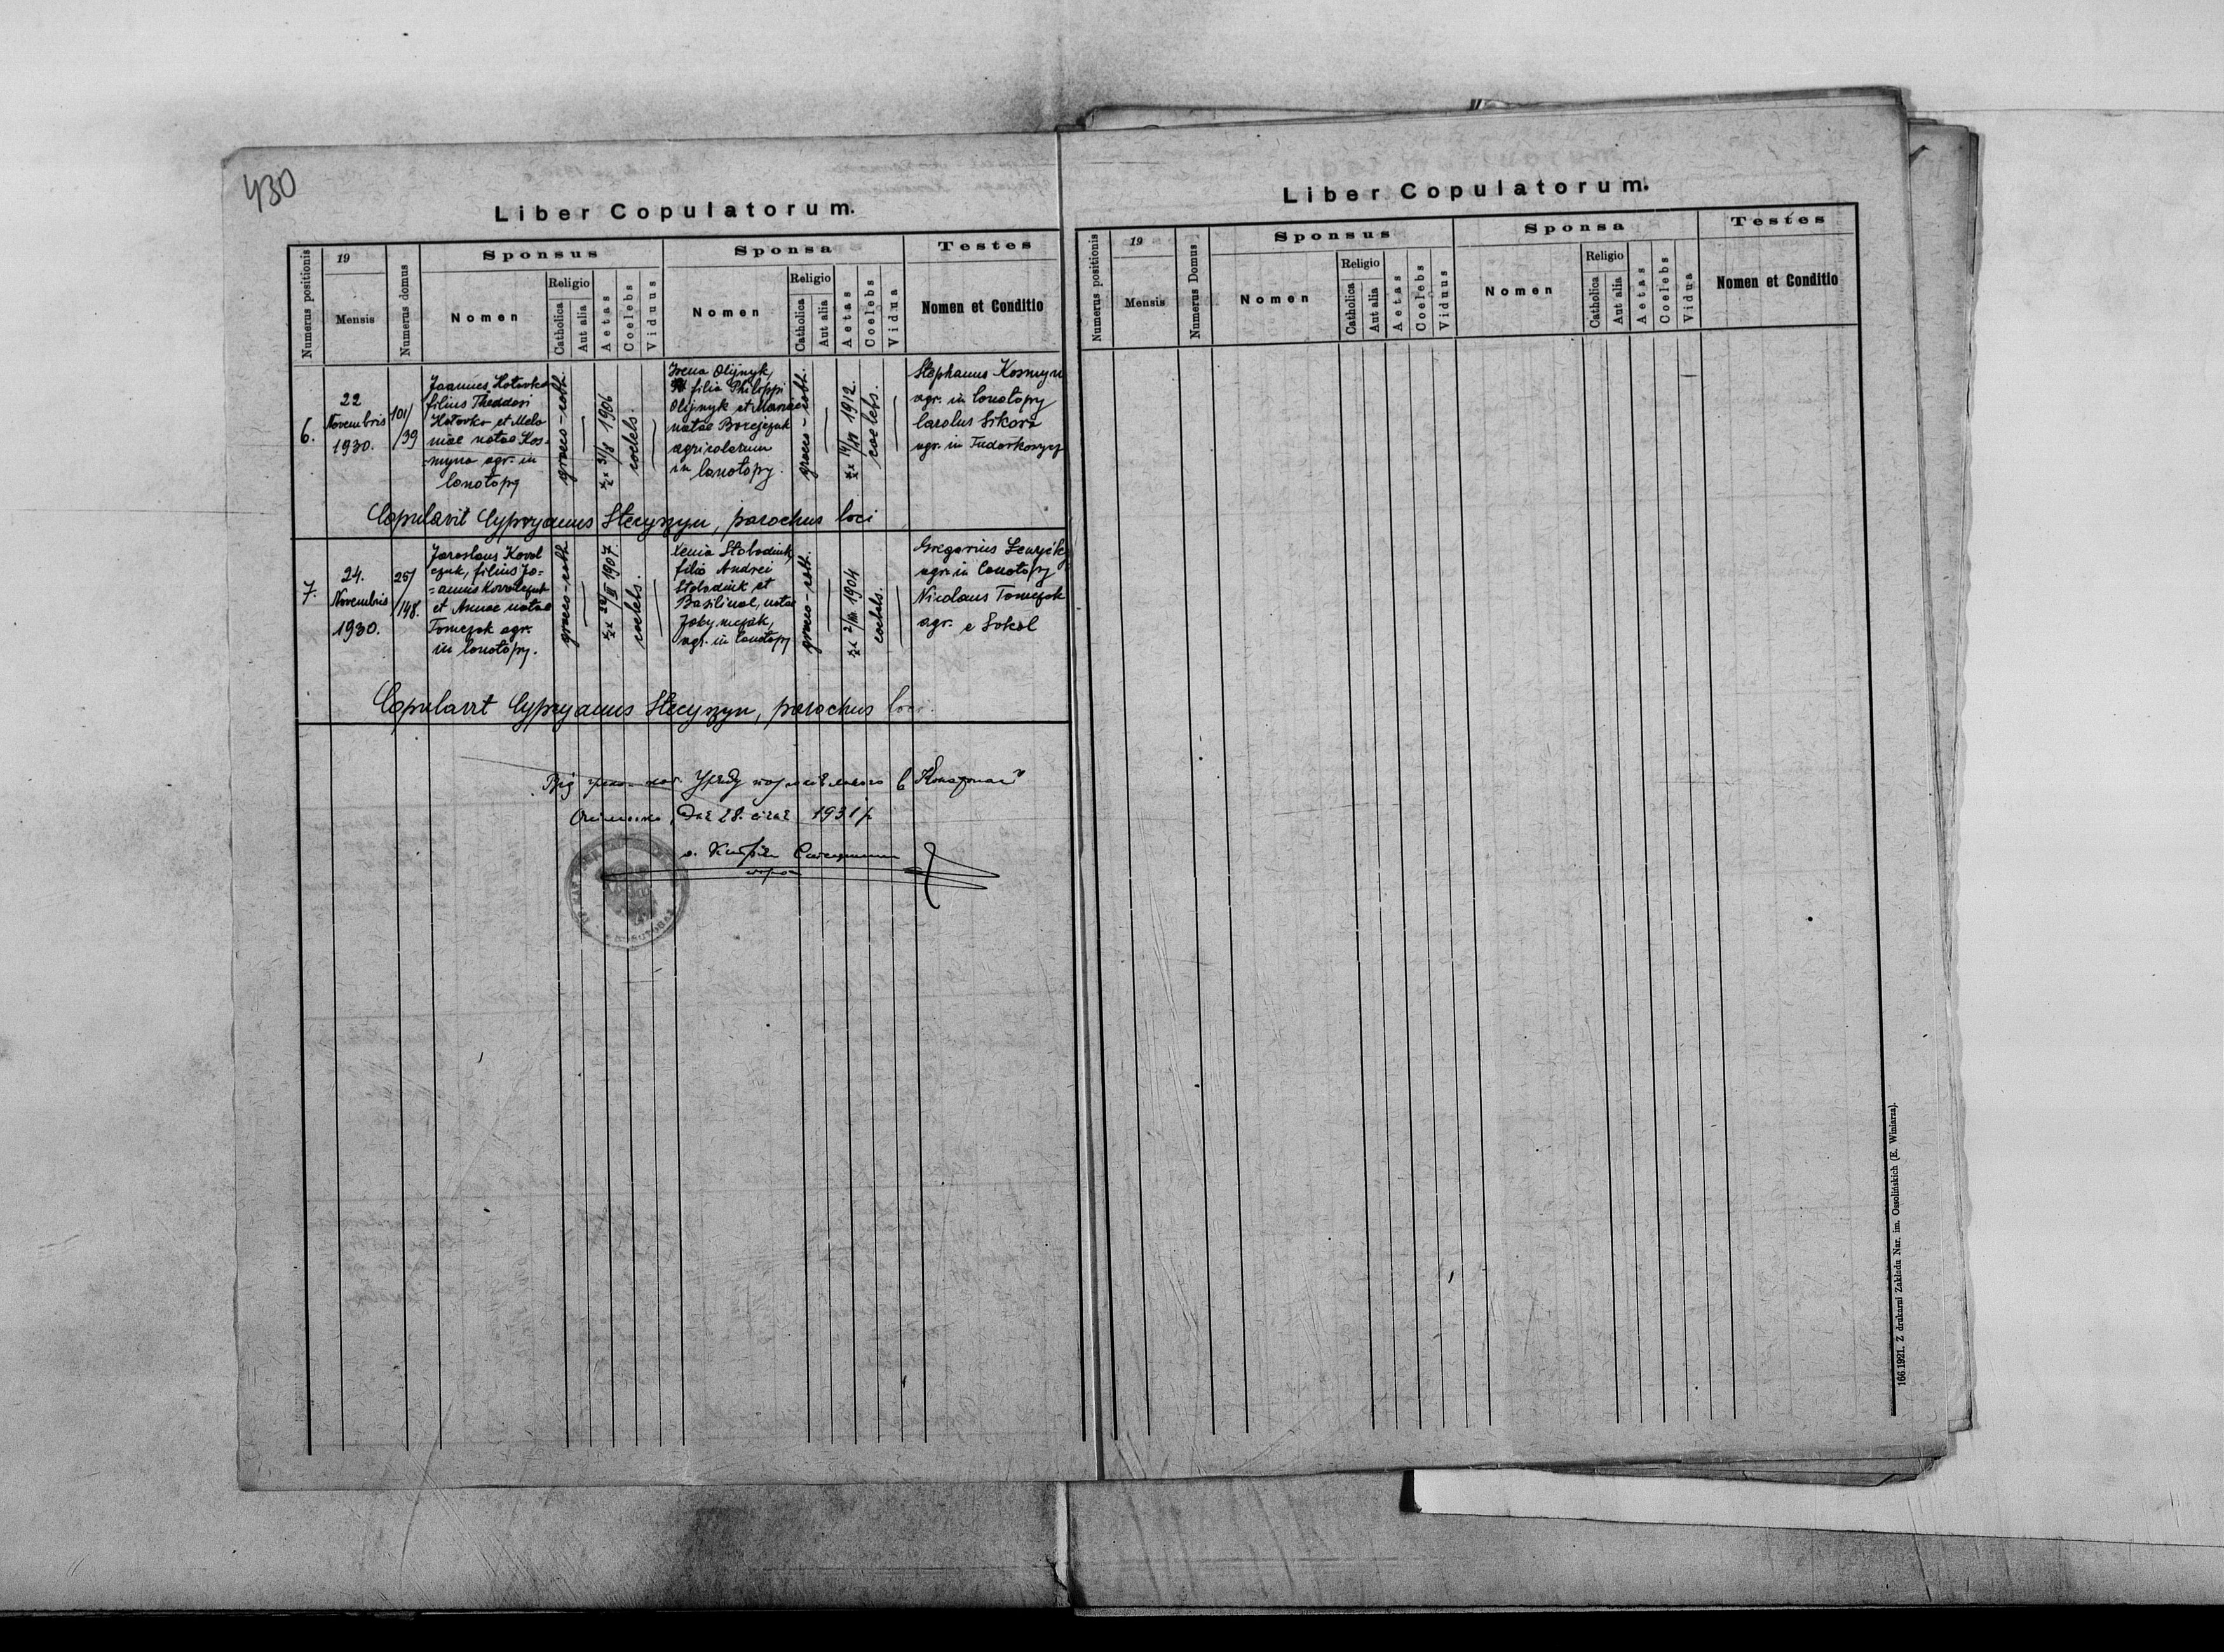 430
Liber Copulatorum.
Numerus positionis
19
Mensis
Numerus domus
Sponsus
Nomen
Religio
Catholica
Aut alia
Aetas
Coelebs
Viduus
Sponsa
Nomen
Religio
Catholica
Aut alia
Aetas
Coelebs
Vidua
Testes
Nomen et Conditio
6.
22
Novembris
1930.
101/
/39
Joannes Hotovko
filius Theodosi
Hotovko et Mela
niae natae Kos=
myna agr. in
Conotopy
graeco-cath.
31/8 1906
coelebs.
Irena Olijnyk,
filia Philippi
Olijnyk et Mariae
natae Borejczuk
agricolarum
in Conotopy.
graeco-cath.
1912
coelebs.
Stephanus Kosmyn
agr. in Conotopy
Carolus Sikora
agr. in Tudorkowycz
Copulavit Cypryanus Stecyszyn, parochus loci
7.
24.
Novembris
1930.
25/
/148.
Jaroslaus Koval
czuk, filius Jo=
=annis Kovalczuk
et Annae natae
Tomczak agr.
in Conotopy.
graeco-cath
1907.
coelebs.
Xenia Slobodiuk,
filia Andrei
Slobodiuk et
Basilinae, natae
agr. in Conotopy
graeco-cath.
1904
coelebs.
Gregorius
agr. in Conotopy
Nicolaus Tomczak
agr. e Sokal
Copulavit Cypryanus Stecyszyn, parochus loci.
Від греко-кат. Уряду парохіяльного в
Дня 28. січня 1931 р.
Liber Copulatorum.
Numerus positionis
19
Mensis
Numerus Domus
Sponsus
Nomen
Religio
Catholica
Aut alia
Aetas
Coelebs
Viduus
Sponsa
Nomen
Religio
Catholica
Aut alia
Aetas
Coelebs
Vidua
Testes
Nomen et Conditio
166 1921. Z drukarni Zakładu Nar. im. Ossolińskich (E. Winiarza).